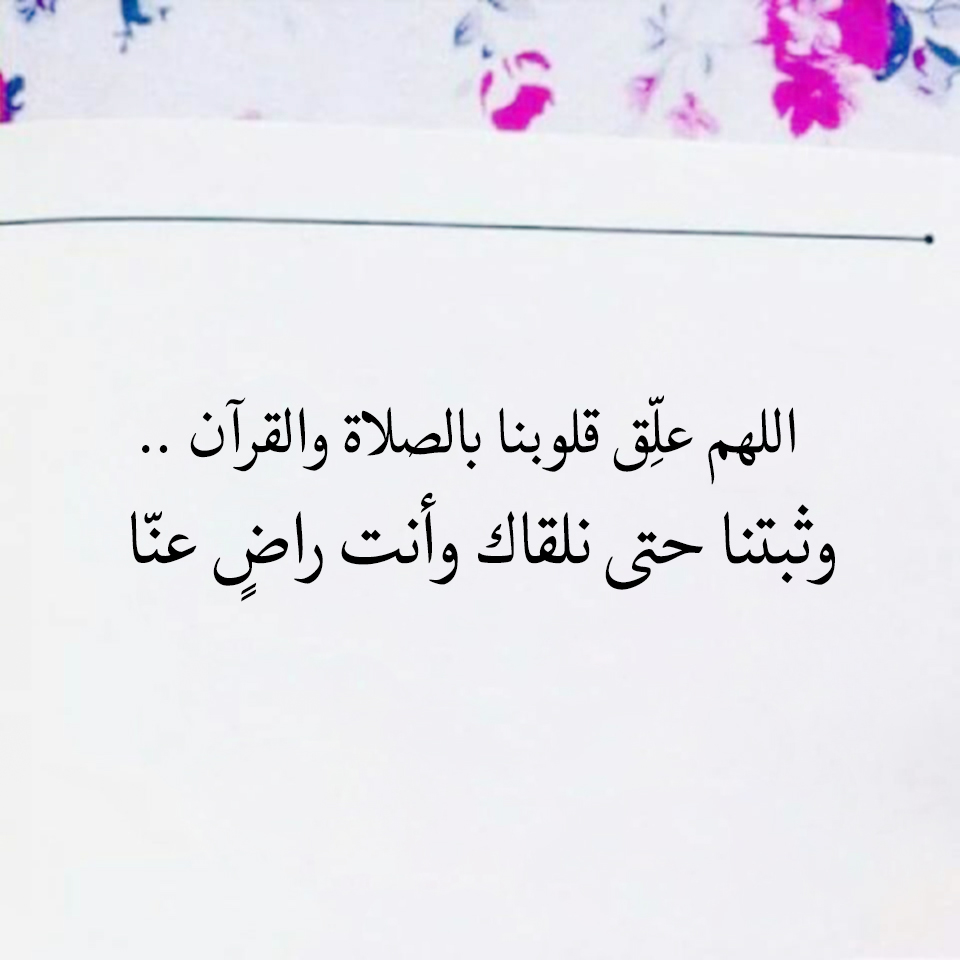 اللهم علِّق قلوبنا بالصلاة والقرآن ..
وثبتنا حتى نلقاك وأنت راضٍ عنّا